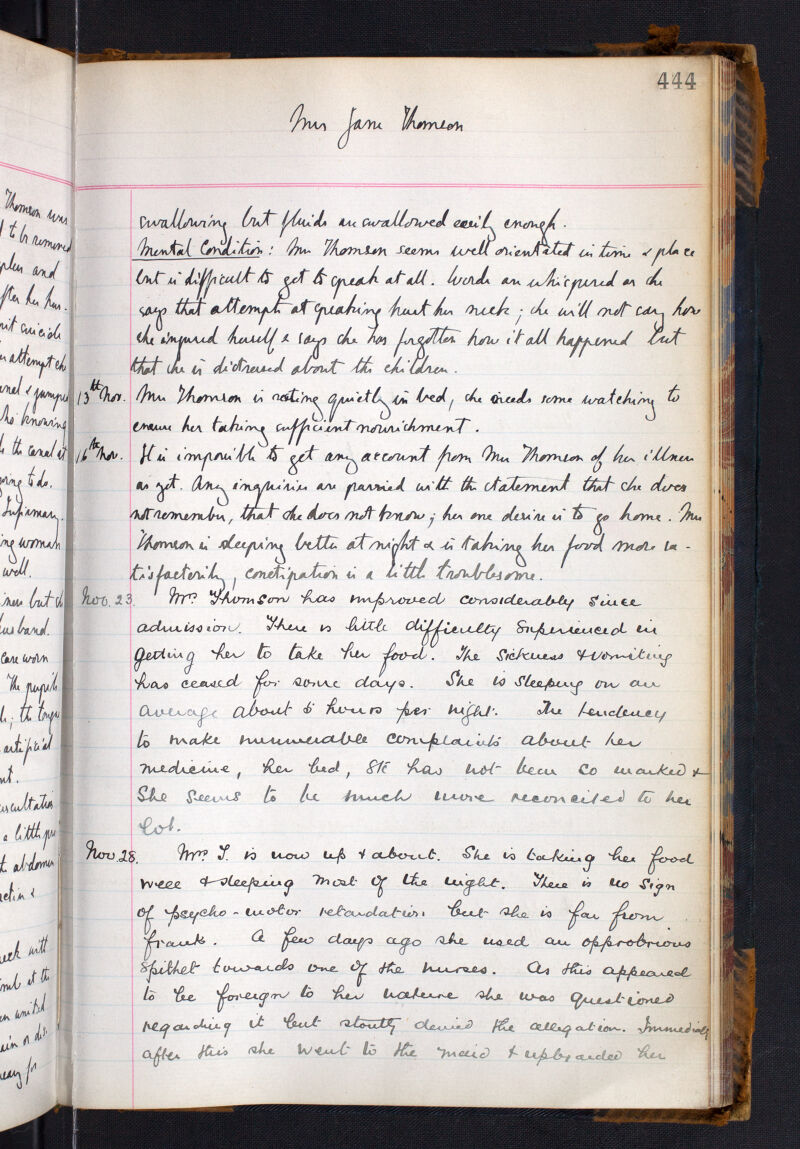 Thomson was
to be removed
and
after her hus-
suicide
attempt she
& jumped
knowing
the canal at
going to do.
Infirmary.
woman
well.
but
husband.
care worn
The pupils
; the tongue
artificial
auscultation
a little
abdomen
&
neck with
at the
united
or
for
444
Mrs Jane Thomson
swallowing but fluids are swallowed easily enough.
Mental Condition: Mrs Thomson seems well orientated in time & place
but is difficult to get to speak at all. Words are whispered as she
says that attempts at speaking hurt her neck; she will not say how
she injured herself & says she has forgotten how it all happened but
that she is distressed about the children.
13th Nov. Mrs Thomson is resting quietly in bed, she needs some watching to
ensure her taking sufficient nourishment.
16th Nov. It is impossible to get any account from Mrs Thomson of her illness
as yet. Any inquiries are parried with the statement that she does
not remember, that she does not know; her one desire is to go home. Mrs
Thomson is sleeping better at night & is taking her food more sa-
tisfactorily, constipation is a little troublesome.
Nov. 23. Mrs. Thomson has improved considerably since
admission. There is little difficulty experienced in
getting her to take her food. The sickness & vomiting
has ceased for some days. She is sleeping on an
average about 5 hours per night. The tendency
to make innumerable complaints about her
medicine, her bed, etc has not been so marked &
she seems to be much more reconciled to her
lot.
Nov. 28. Mrs. T. is now up & about. She is taking her food
well & sleeping most of the night. There is no sign
of psycho-motor retardation but she is far from
frank. A few days ago she used an opprobrious
epithet towards one of the nurses. As this appeared
to be foreign to her nature she was questioned
regarding it but stoutly denied the allegation. Immediately
after this she went to the maid & upbraided her